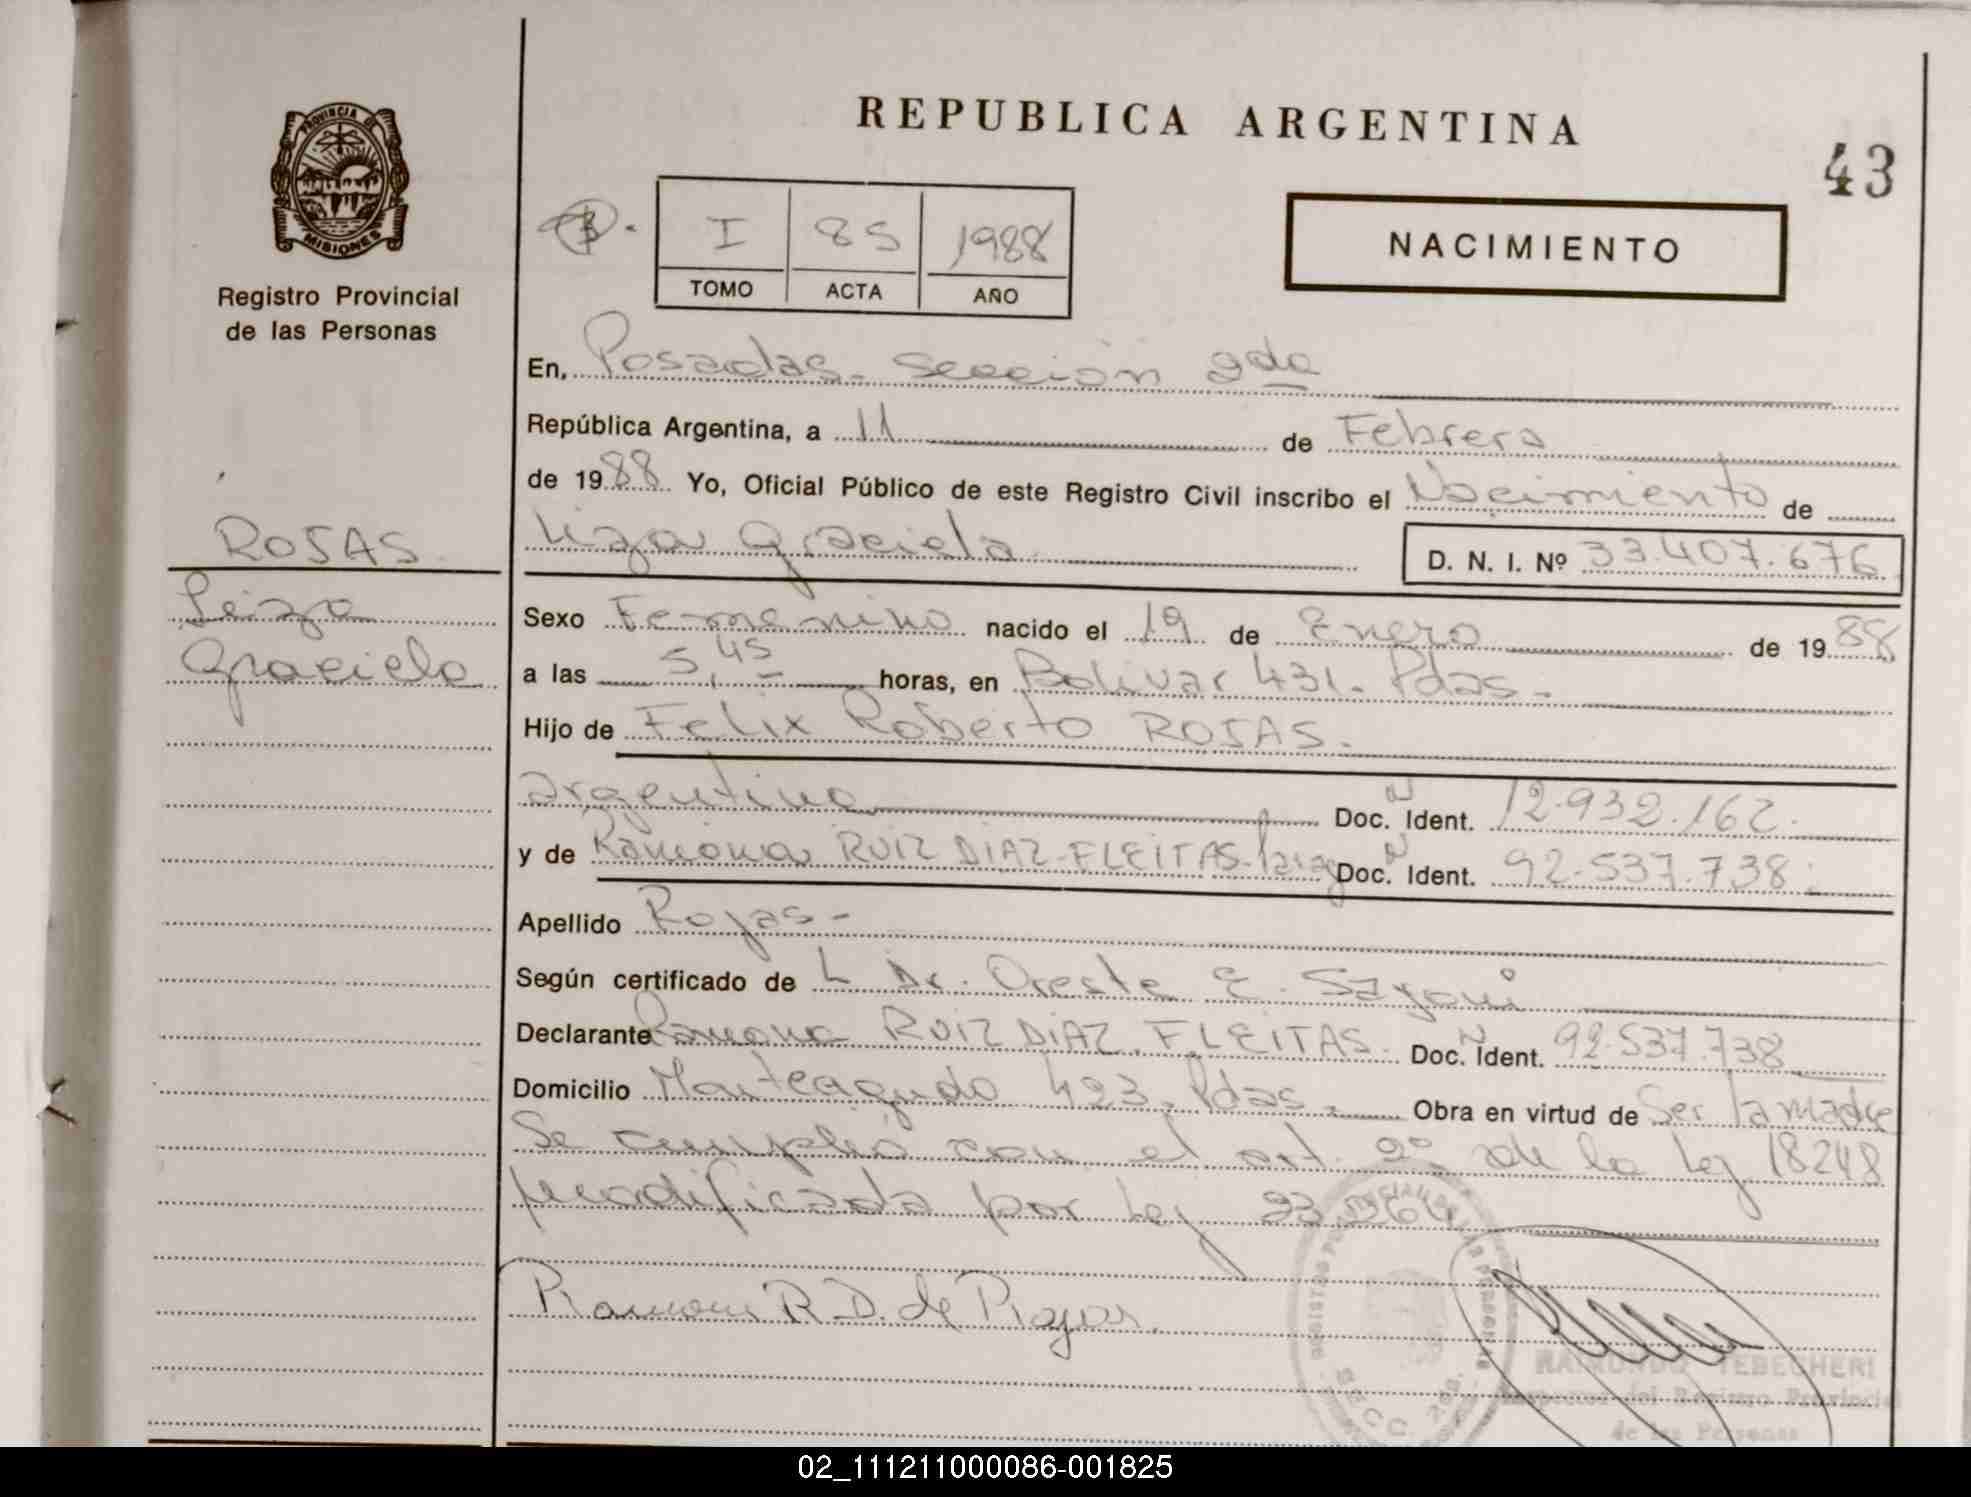 REPUBLICA ARGENTINA
43
PROVINCIA DE
MISIONES
Registro Provincial
de las Personas
I 85 1988
TOMO ACTA AÑO
NACIMIENTO
En, Posadas - Sección 2da
República Argentina, a 11 de Febrero
de 1988 Yo, Oficial Público de este Registro Civil inscribo el Nacimiento de
Liza Graciela
D. N. I. Nº 33.407.676
ROJAS
Leiza
Graciela
Sexo Femenino nacido el 19 de Enero de 1988
a las 5,45 horas, en Bolivar 431. Pdas.
Hijo de Felix Roberto ROJAS.
argentino Doc. N Ident. 12.932.162.
y de Ramona RUIZ DIAZ - FLEITAS - parag Doc. N Ident. 92.537.738
Apellido Rojas -
Según certificado de L Dr. Oreste E.
Declarante Ramona RUIZ DIAZ. FLEITAS. Doc. N Ident. 92.537.738
Domicilio Monteagudo 423. Pdas. Obra en virtud de Ser la madre
Se cumplió con el art. 2º de la Ley 18248
modificada por Ley 23264
Ramona R. D. de Rojas
SECC. 2da.
RAIMUNDO TEBECHERI
Inspector del Registro Provincial
de las Personas
02_111211000086-001825